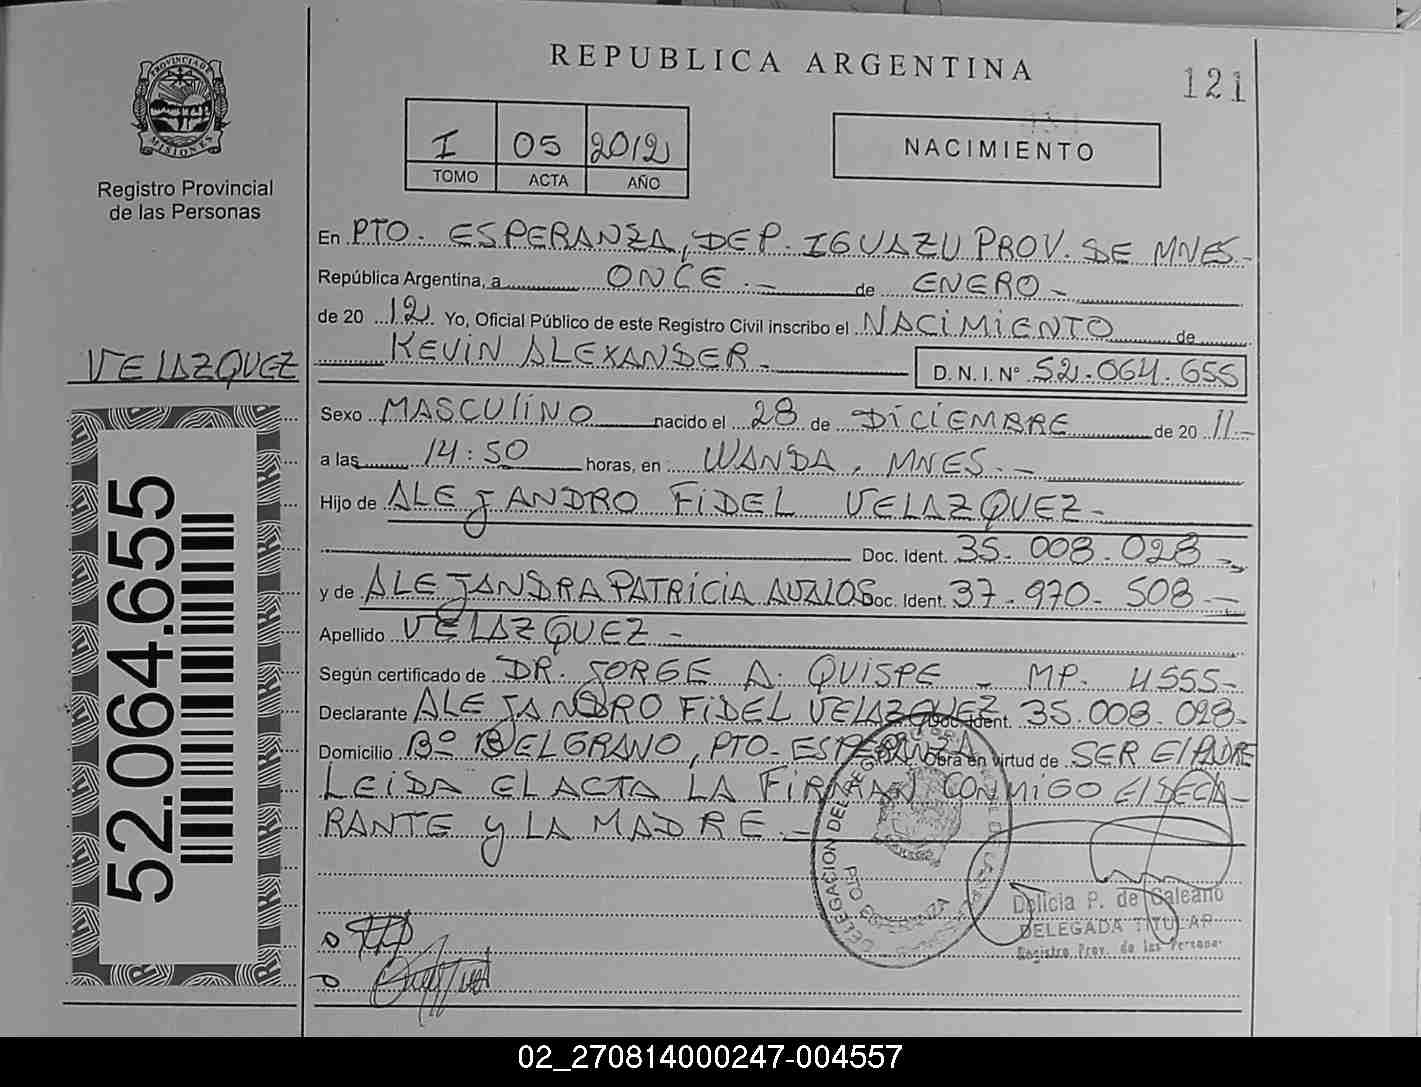 REPUBLICA ARGENTINA
121
PROVINCIA DE
MISIONES
Registro Provincial
de las Personas
I 05 2012
TOMO ACTA AÑO
NACIMIENTO
En PTO. ESPERANZA, DEP. IGUAZU PROV. DE MNES.-
República Argentina, a ONCE.- de ENERO-
de 20 12 Yo, Oficial Público de este Registro Civil inscribo el NACIMIENTO de
KEVIN ALEXANDER.- D. N. I. N° 52.064.655
VELAZQUEZ
Sexo MASCULINO nacido el 28 de DICIEMBRE de 20 11.-
a las 14:50 horas, en WANDA, MNES.-
Hijo de ALEJANDRO FIDEL VELAZQUEZ-
Doc. Ident. 35.008.028-
y de ALEJANDRA PATRICIA AVALOS Doc. Ident. 37-970-508-
Apellido VELAZQUEZ-
Según certificado de DR. JORGE A. QUISPE - MP. 4555-
Declarante ALEJANDRO FIDEL VELAZQUEZ Doc. Ident. 35.008.028-
Domicilio Bº BELGRANO, PTO-ESPERANZA Obra en virtud de SER El PADRE
LEIDA EL ACTA LA FIRMAN CONMIGO El DECLA-
RANTE y LA MADRE.-
52.064.655
DELEGACION DEL REGISTRO
PTO ESPERANZA
Delicia P. de Galeano
DELEGADA TITULAR
Registro Prov. de las Personas
02_270814000247-004557